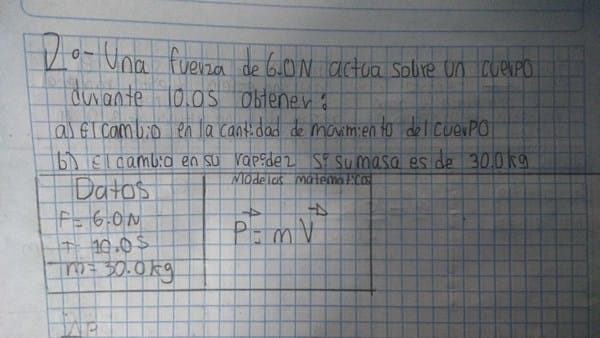 2º- Una fuerza de 6.0N actua sobre un cuerpo
durante 10.0S obtener:
a) El cambio en la cantidad de movimiento del cuerpo
b) El cambio en su rapidez si su masa es de 30.0kg
Datos
Modelos matematicos
F= 6.0N
T= 10.0S
m= 30.0kg
P= m V